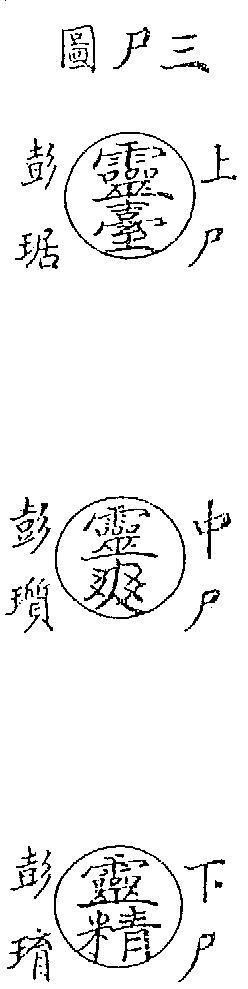 三尸圖
上尸
靈臺
彭琚
中尸
靈爽
彭瓆
下尸
靈精
彭琦